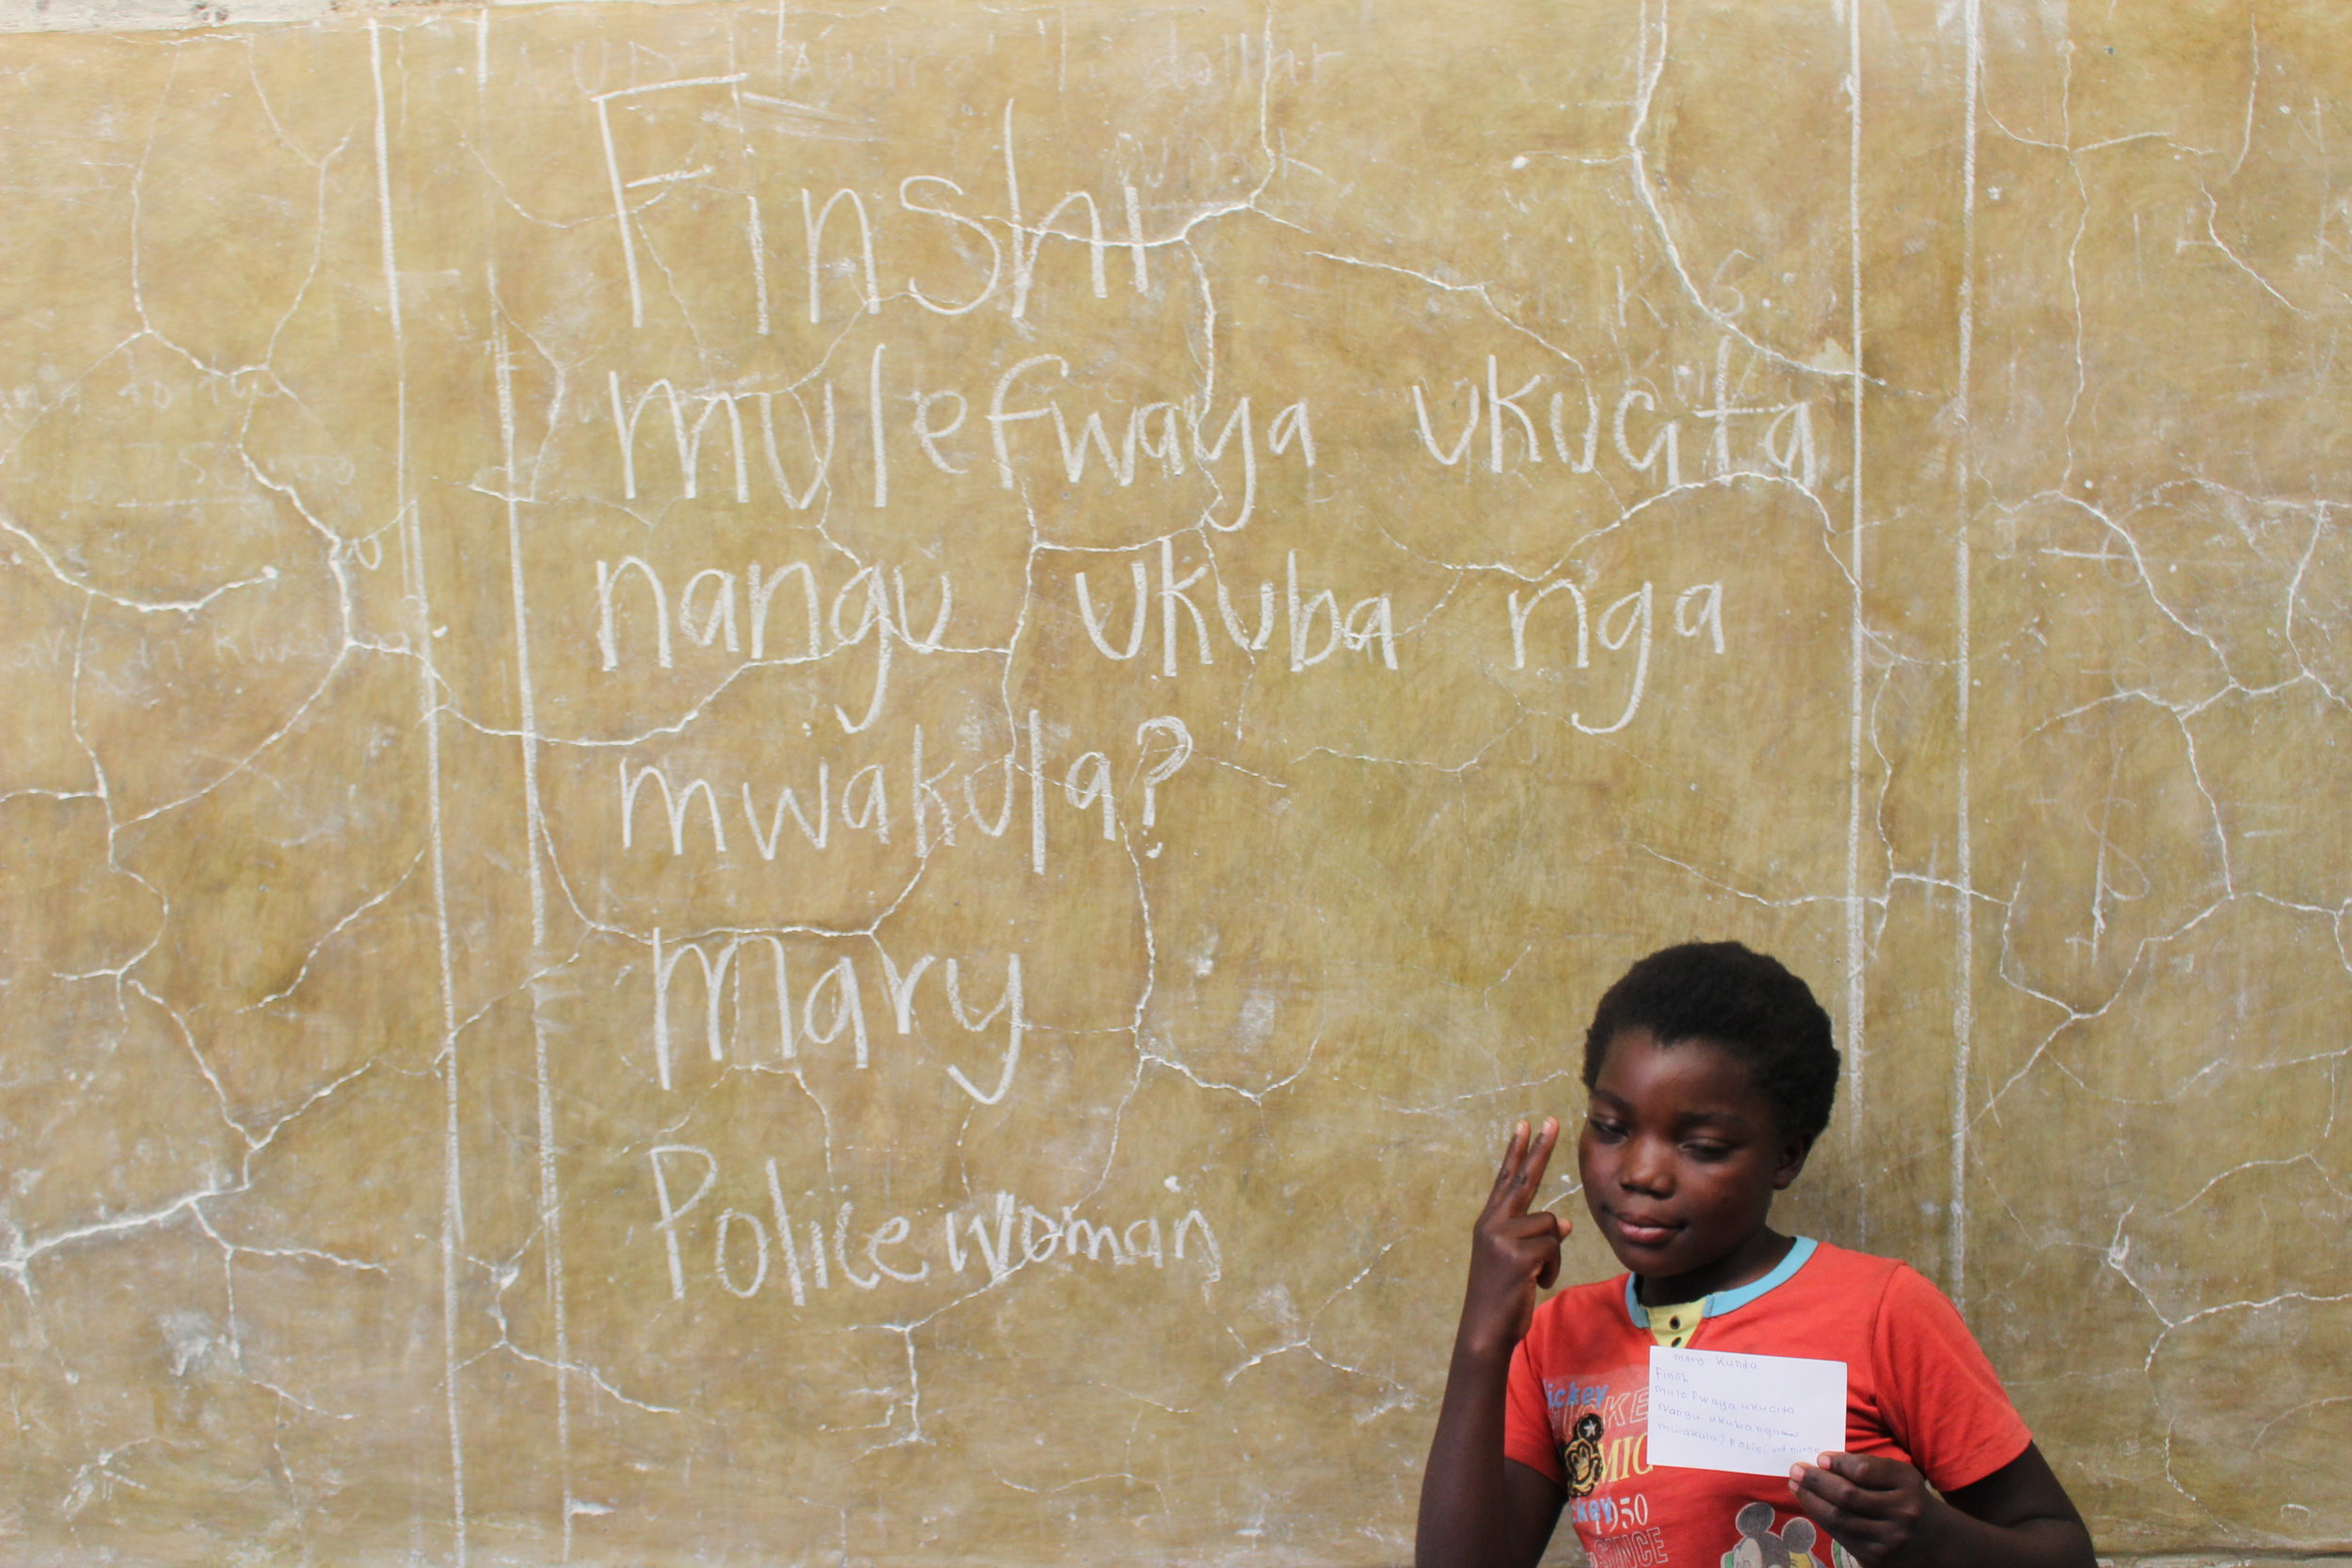 Finshi
mulefwaya ukucita
nangu ukuba nga
mwakula?
Mary
Police woman
mary Kunda
Finsh
mulefwaya ukucita
Nangu ukuba nga
mwakula? Polis, and nurse
ickey
MIC
1950
SINCE